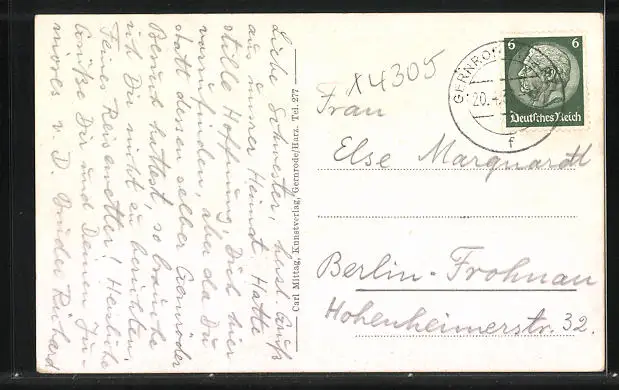 Liebe Schwester, herzl. Gruß
aus unserer Heimat. Hatte
stille Hoffnung, Dich hier
vorzufinden, aber da Du
statt dessen selber Gernröder
Besuch hattest, so brauche
ich Dir nicht zu berichten.
Feines Reisewetter! Herzliche
Grüße Dir und Deinen
v. D. Bruder Richard
Carl Mittag, Kunstverlag, Gernrode/Harz. Tel. 277
x 4305
GERNRO
20.
f
6 6
Deutsches Reich
Frau
Else Marquardt
Berlin-Frohnau
Hohenheimerstr. 32.